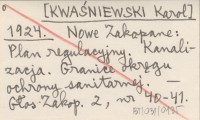 [KWAŚNIEWSKI Karol]
1924. Nowe Zakopane:
Plan regulacyjny. Kanali-
zacja. Granice okręgu
ochrony sanitarnej. –
Głos Zakop. 2, nr 40-41.